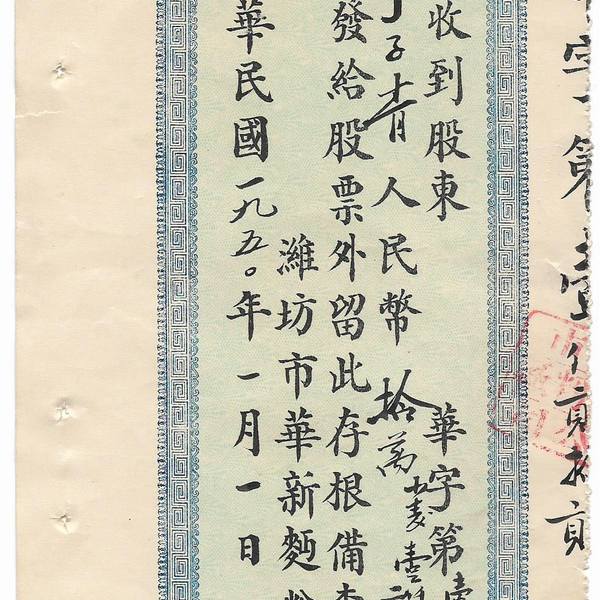 字第壹仟貳拾貳
收到股東
華字第壹
丁子青人民幣拾萬
發給股票外留此存根備查
濰坊市華新麵粉
華民國一九五〇年一月一日